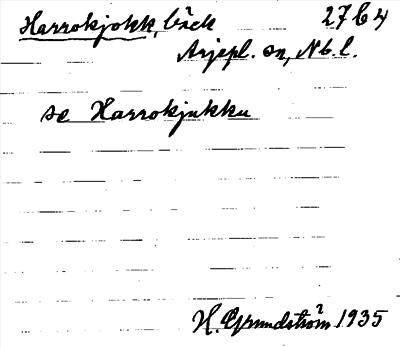 Harrokjokk, bäck 27 b 4
Arjepl. sn, Nb. l.
se Harrokjukku
H. Grundström 1935